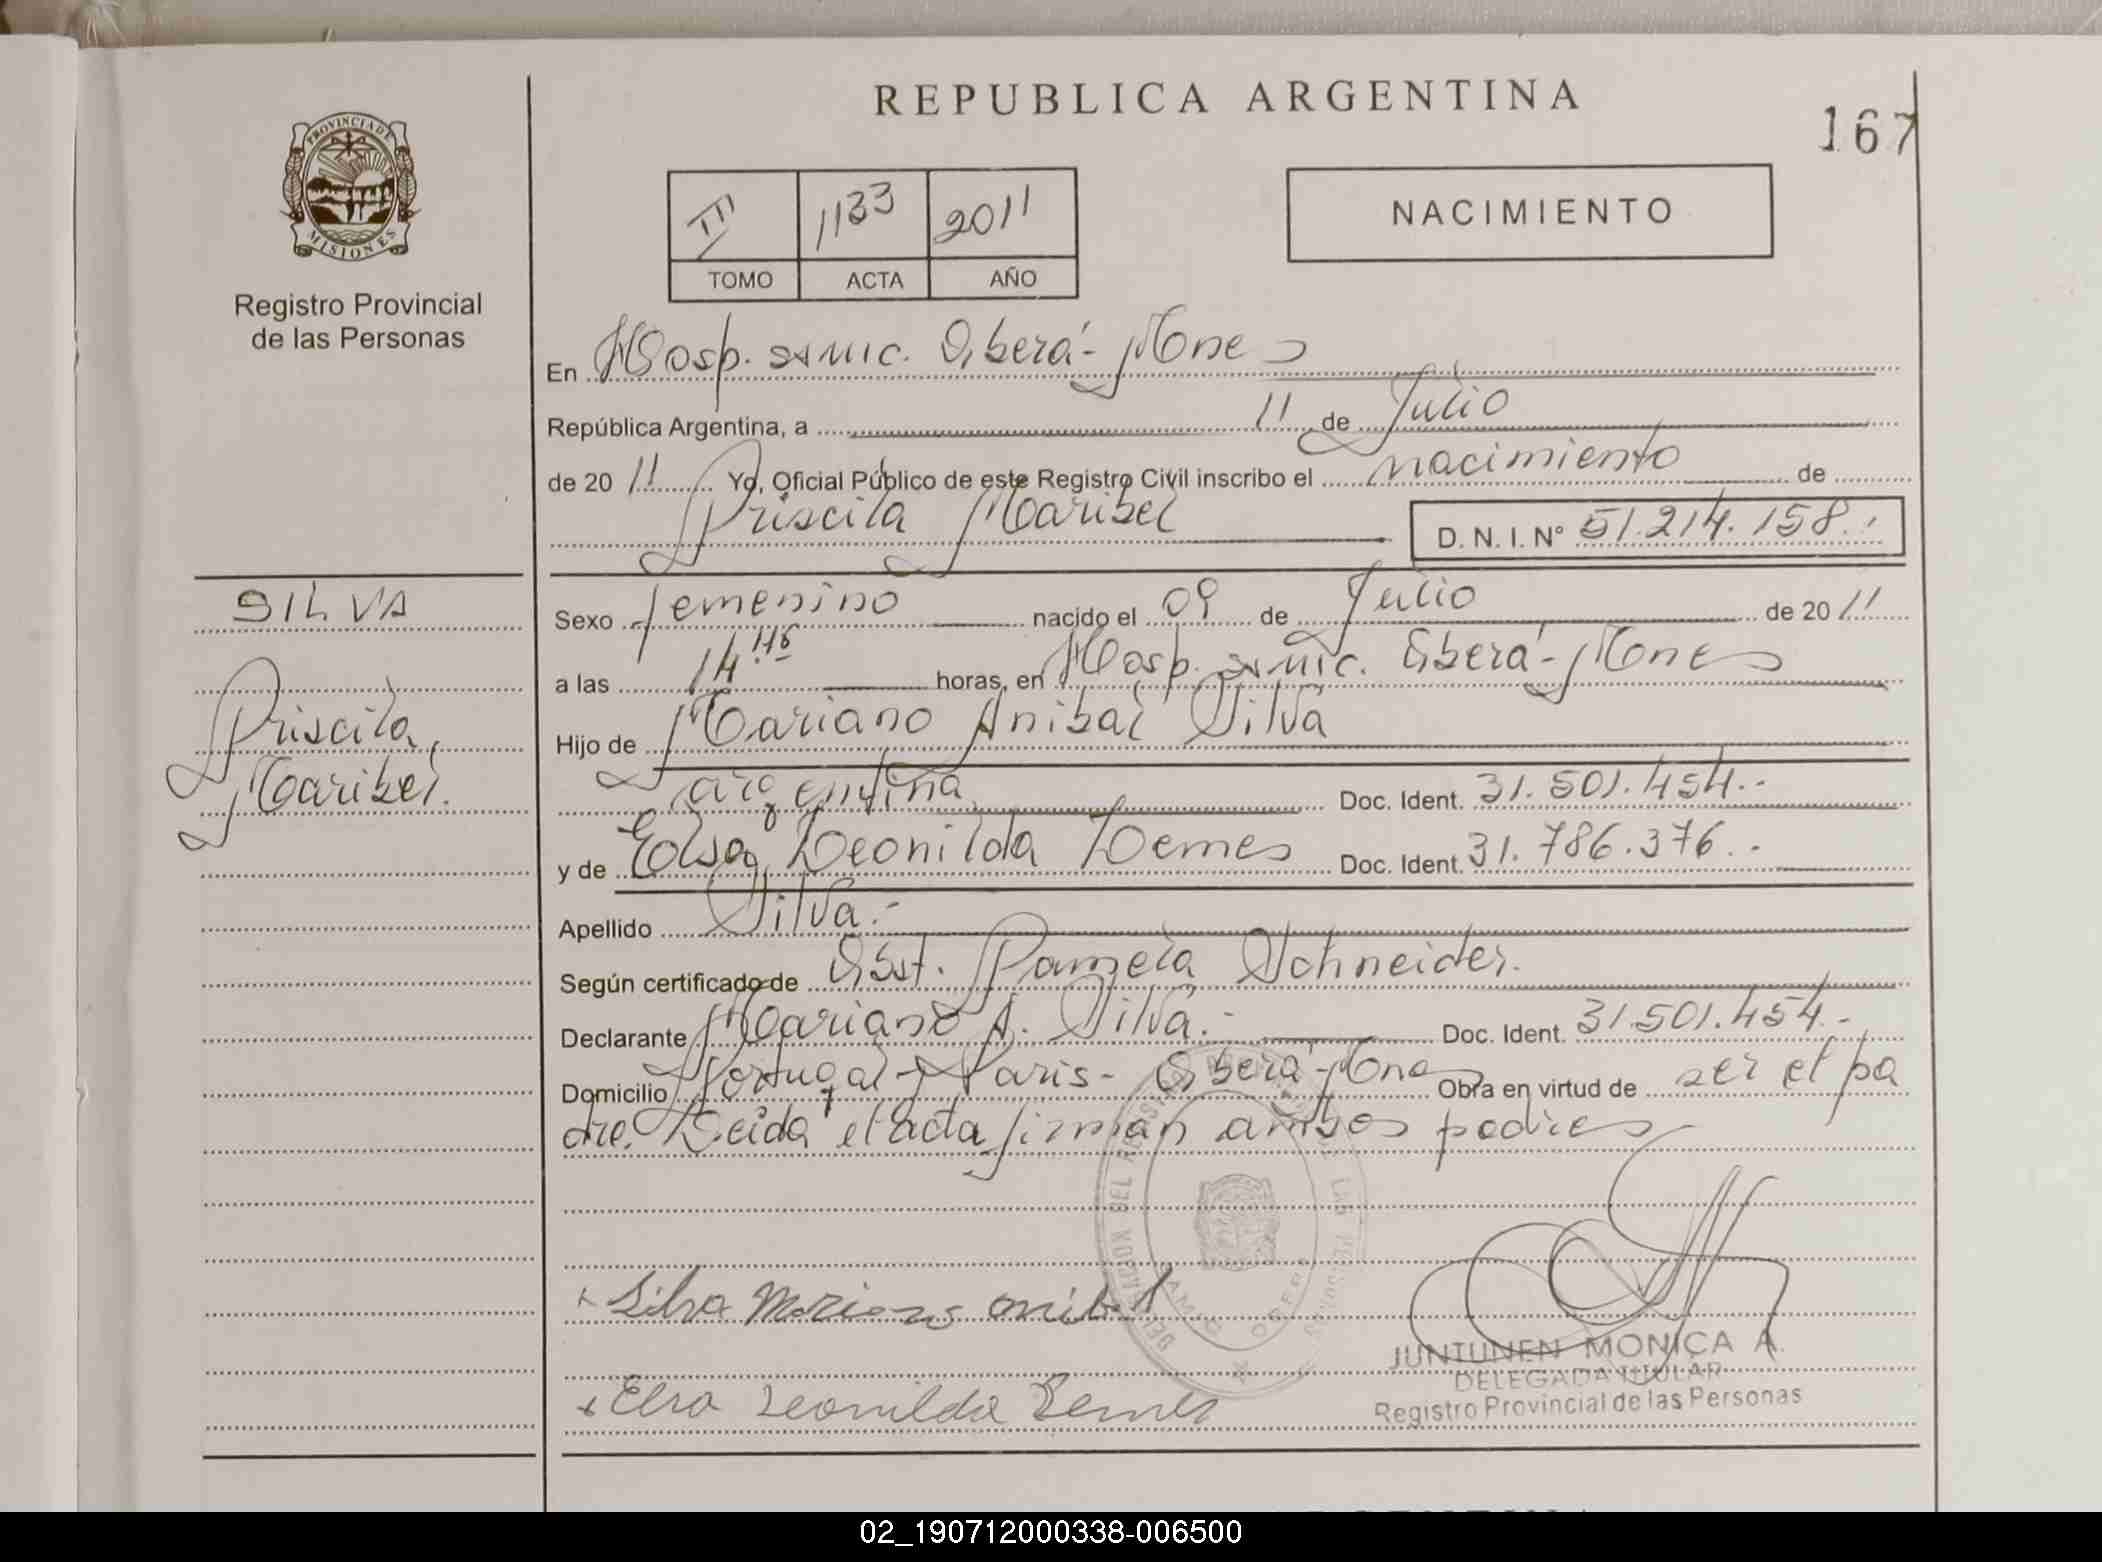 REPUBLICA ARGENTINA
167
PROVINCIA DE
MISIONES
Registro Provincial
de las Personas
III 1133 2011
TOMO ACTA AÑO
NACIMIENTO
En Hosp. Oberá - Mnes
República Argentina, a 11 de Julio
de 20 11 Yo, Oficial Público de este Registro Civil inscribo el nacimiento de
Priscila Maribel
D. N. I. N° 51.214.158.
SILVA
Priscila
Maribel.
Sexo femenino nacido el 09 de Julio de 20 11
a las 14 Hs horas, en Hosp. Oberá - Mnes
Hijo de Mariano Anibal Silva
argentina Doc. Ident. 31.501.454.-
y de Elsa Leonilda Lemes Doc. Ident. 31.786.376.-
Apellido Silva.-
Según certificado de Obst. Pamela Schneider.
Declarante Mariano A. Silva.- Doc. Ident. 31.501.454.-
Domicilio Portugal y Paris - Oberá - Mnes Obra en virtud de ser el pa
dre. Leida el acta firman ambos padres
Silva Mariano Anibal
Elsa Leonilda Lemes
JUNTUNEN MONICA A.
DELEGADA TITULAR
Registro Provincial de las Personas
02_190712000338-006500